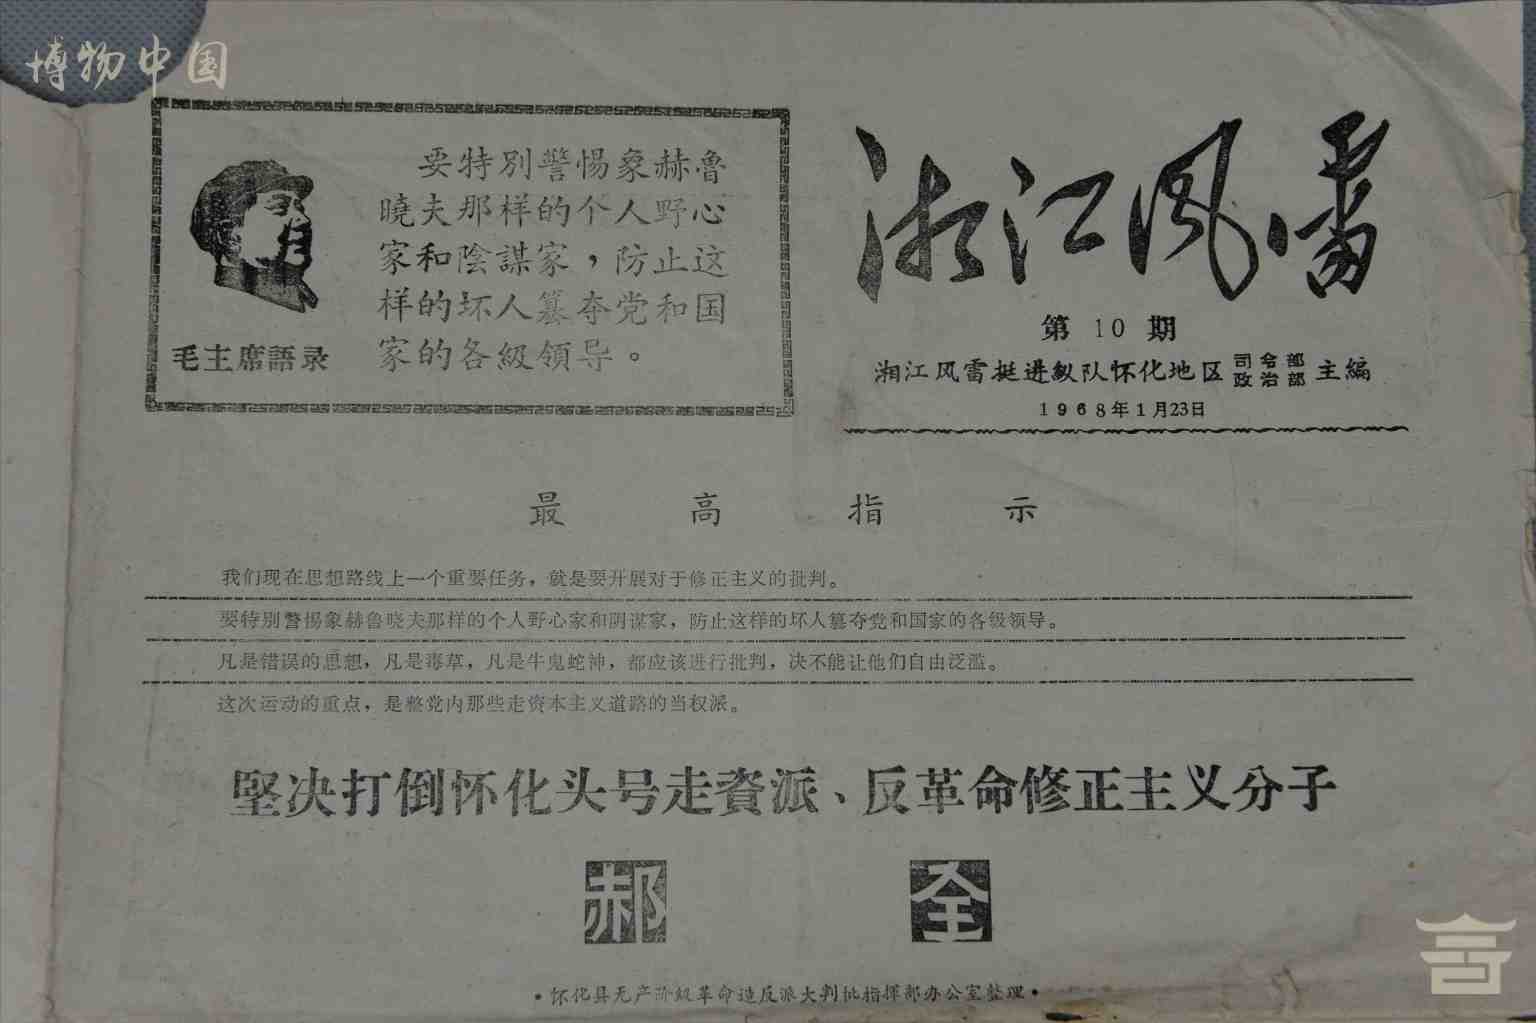 博物中国
要特別警惕象赫魯
曉夫那样的个人野心
家和陰謀家，防止这
样的坏人篡夺党和国
家的各級領导。
毛主席語录
湘江风雷
第 10 期
湘江风雷挺进纵队怀化地区司令部政治部主编
1968年1月23日
最高指示
我们现在思想路线上一个重要任务，就是要开展对于修正主义的批判。
要特别警惕象赫鲁晓夫那样的个人野心家和阴谋家，防止这样的坏人篡夺党和国家的各级领导。
凡是错误的思想，凡是毒草，凡是牛鬼蛇神，都应该进行批判，决不能让他们自由泛滥。
这次运动的重点，是整党内那些走资本主义道路的当权派。
坚决打倒怀化头号走資派、反革命修正主义分子
郝全
·怀化县无产阶级革命造反派大判批指挥部办公室整理·